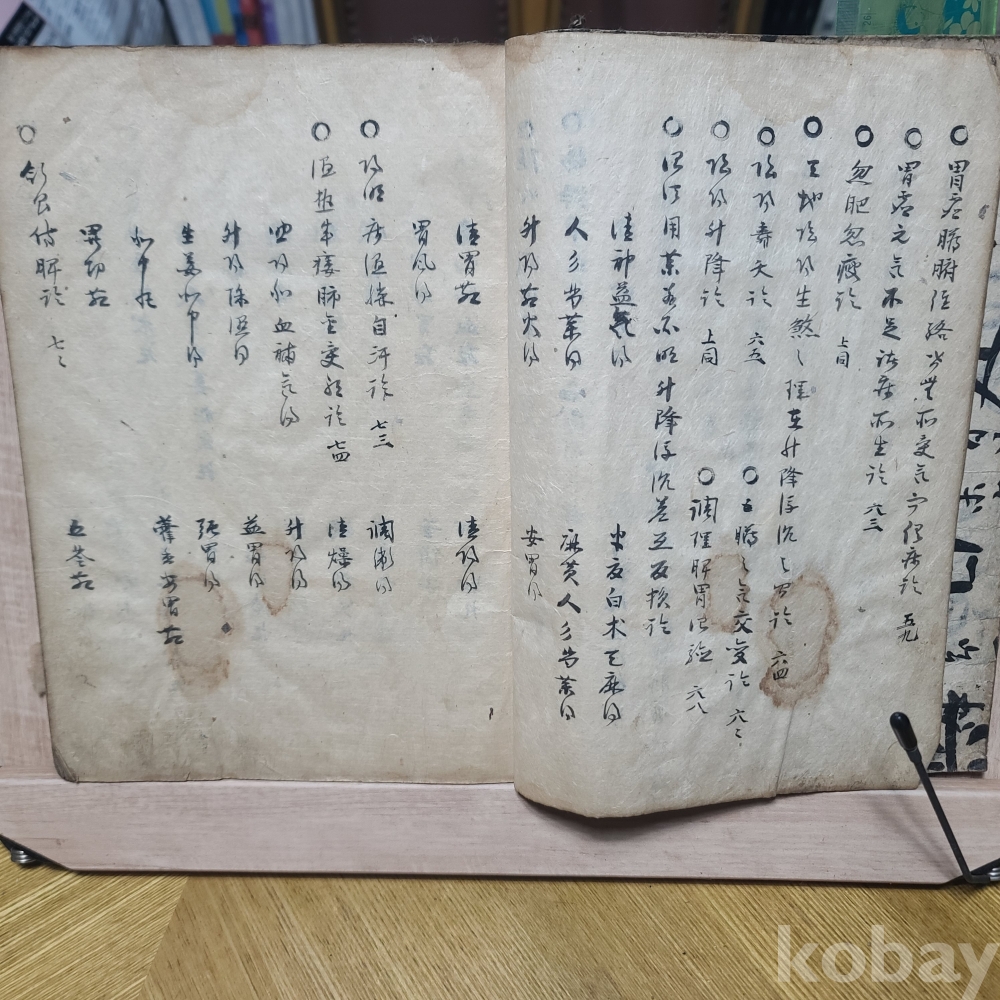 胃虛臟腑經絡皆無所受氣而俱病論 五九
胃虛元氣不足諸病所生論 六三
忽肥忽瘦論 上同
天地陰陽生煞之理在升降浮沉之間論 六四
陰陽壽夭論 六五
五臟之氣交變論 六七
陰陽升降論 上同
調理脾胃治驗 六八
治法用藥若不明升降浮沉差互反損論
清神益氣湯
半夏白朮天麻湯
人參芍藥湯
麻黃人參芍藥湯
升陽散火湯
安胃湯
清胃散
清陽湯
胃風湯
陽明病濕勝自汗論 七三
調衛湯
濕熱成痿肺金受邪論 七四
清燥湯
血補氣湯
升陽湯
升陽除濕湯
益胃湯
生姜和中湯
強胃湯
藿香安胃散
異功散
五苓散
飲食傷脾論
kobay